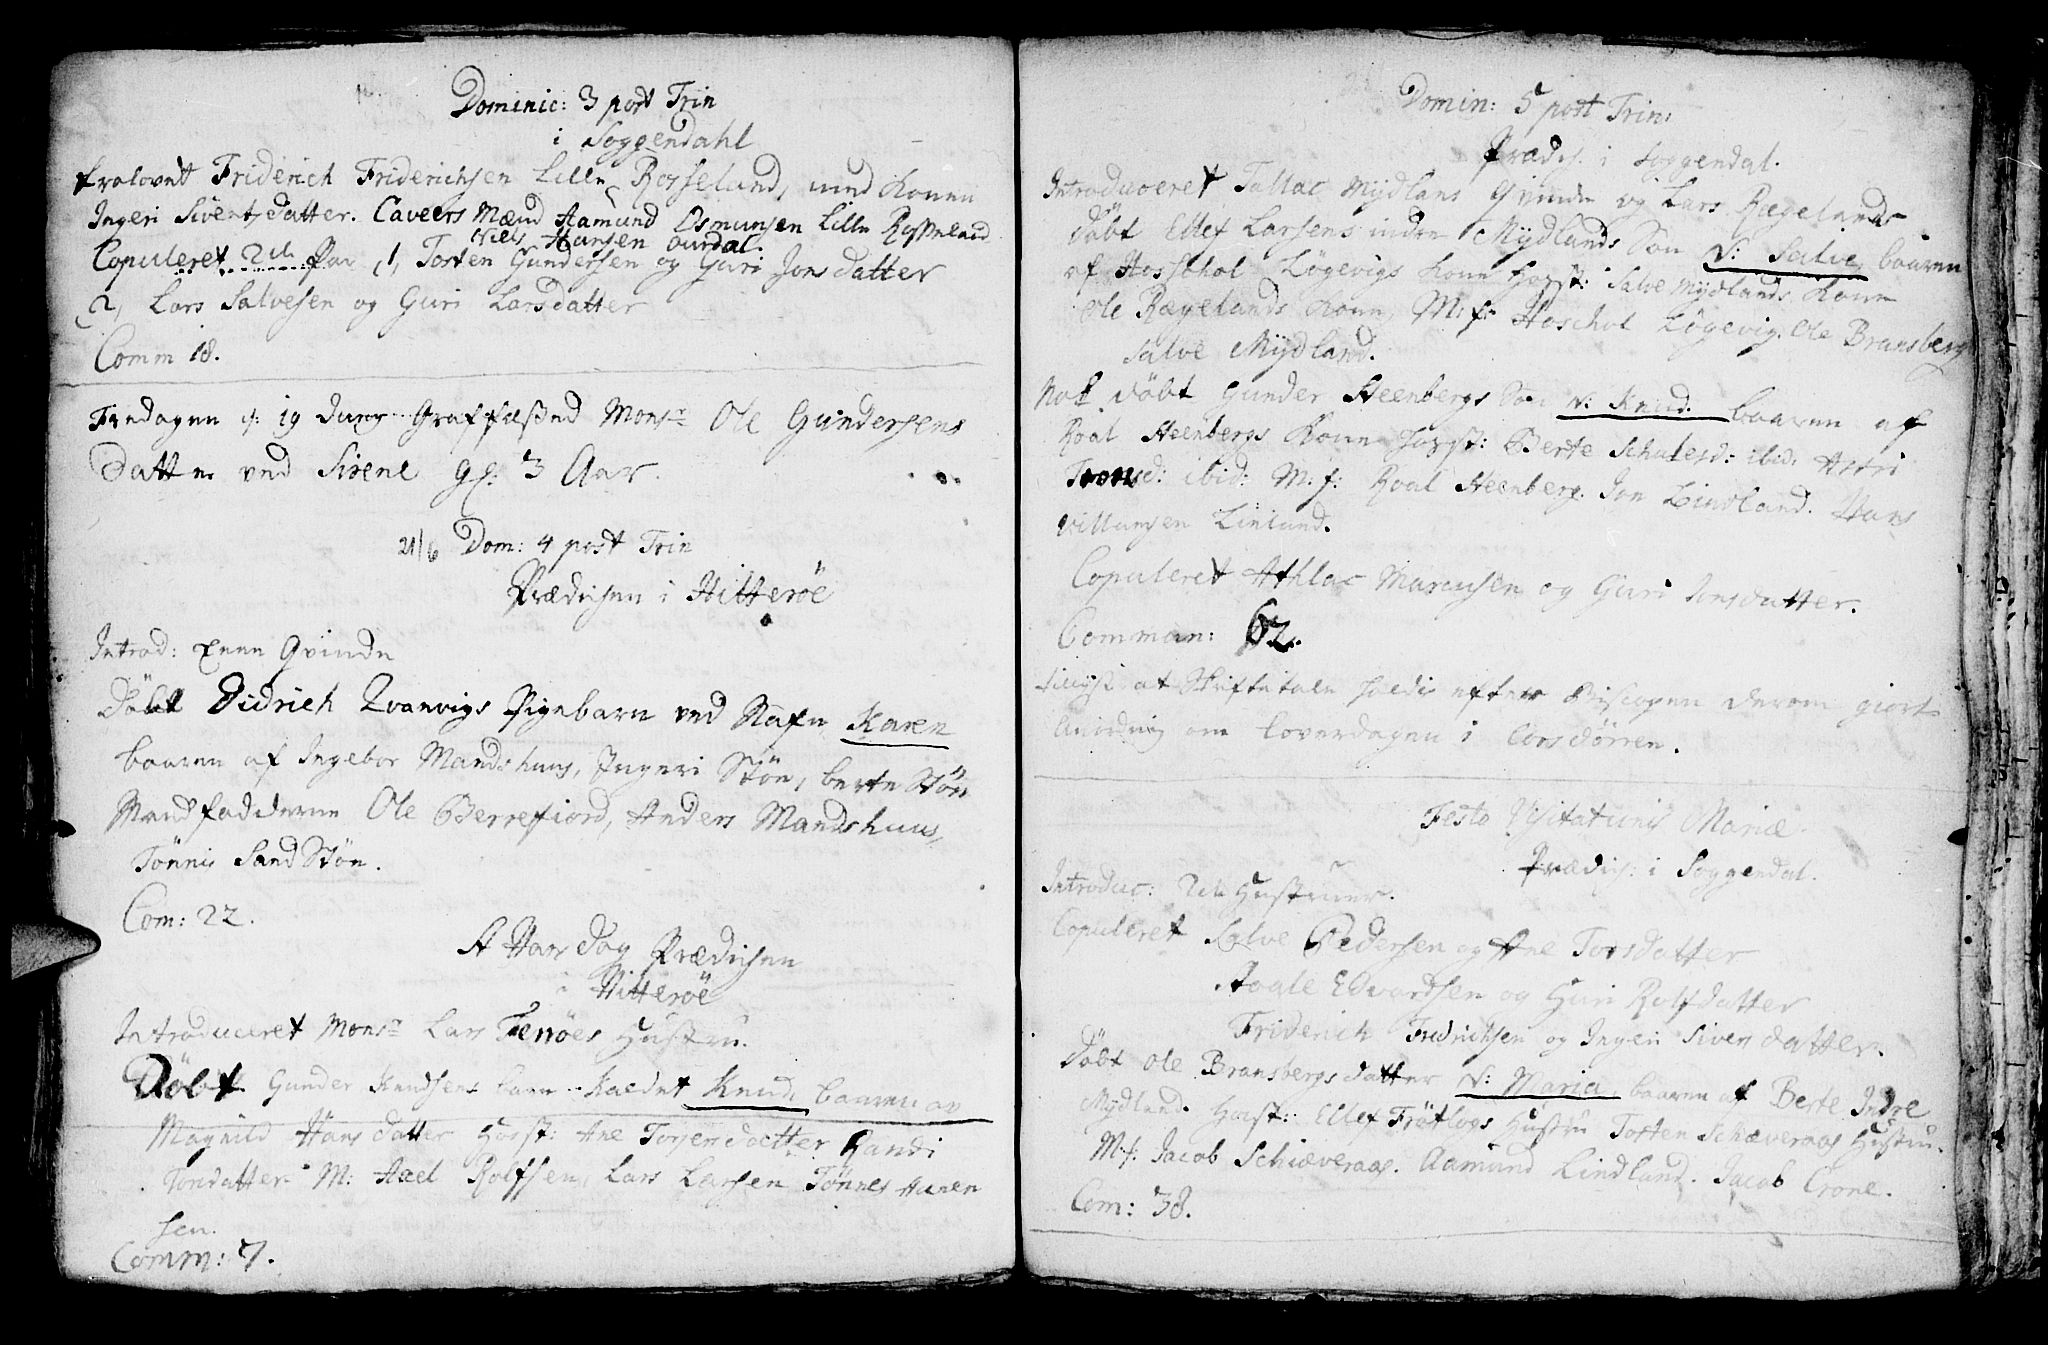 Dominic: 3 post Trin
i Soggendahl
Trolovet Friderich Friderichsen Lille Rosseland, med Konen
Ingeri Siventsdatter. Caveers Mænd Aamund Osmunsen Lille Rosseland
Niels Hansen Ourdal.
Copuleret 2de Par 1, Tosten Gundersen og Guri Jons datter
2, Lars Salvesen og Guri Larsdatter
Comm 18.
Fredagen d: 19 Juny Graffæsted Monsr Ole Gundersens
Datter ved Sirene gl: 3 Aar.
21/6 Dom: 4 post Trin
Prædichen i Hitterøe
Introd: Een Qvinde
Döbt Didrich Rvanvigs Pigebarn ved Nafn Karen
baaren af Ingebor Mandshuus, Ingeri Stöe, berte Stöe
Mandfadderne Ole Berrefiord, Anders Mandshuus,
Tönnis Sand Stöe.
Com: 22.
St Hans Dag Prædichen
i Hitterøe
Introduceret Monsr Lars Fenöes Hustru.
Döbt Gunder Knudsens barn kaldet Knud, baaren av
Magnild Hans datter Hosst: Ane Torjers datter Randi
Tordatter M: Axel Rolfsen, Lars Larsen Tönnes Hanen
sen.
Comm: 7.
Domin: 5 post Trin:
Prædich. i Soggendal.
Introduceret Tallac Mydlans Qvinde og Lars Rægelands
Döbt Ellef Larsens indre Mydlands Son N: Salve, baaren
af Hoschol Lögevigs Kone Hosst: Salve Mydlands Kone
Ole Rægelands Kone, M: f: Hoschol Lögevig. Ole Bransberg
Salve Mydland.
Nok döbt Gunder Steenbergs Son N: Knud. baaren af
Roal Steenbergs Kone Hosst: Berte Schulesd: ibid: Astri
Tronsd: ibid: M: f: Roal Steenberg. Jon Lindland. Hans
Villumsen Linland.
Copuleret Athlac Marcusen og Guri Jonsdatter.
Commun: 62.
at Skriftetale holdes efter Biscopen derom giort
Anordning om Löverdagen i Corsdörren.
Festo Visitationis Mariæ.
Prædich: i Soggendal.
Introduc: 2de Hustruer.
Copuleret Salve Pedersen og Ane Torsdatter
Avale Edvardsen og Guri Rolfsdatter
Friderich Fredrichsen og Ingeri Sivers datter.
Döbt Ole Bransbergs datter N: Maria, baaren af Berte Indre
Mydland. Hosst: Ellef Frötlogs Hustru Tosten Schæveraas Hustru.
M:f: Jacob Schiæveraas. Aamund Lindland. Jacob Crone.
Com: 38.